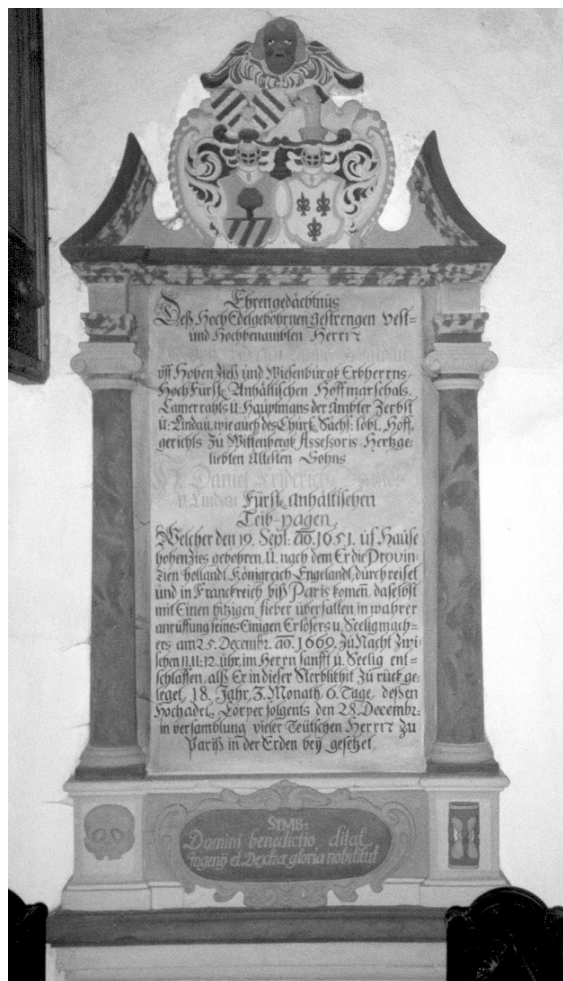 Ehrengedächtnüs
Deß HochEdelgebohrnen Gestrengen Vest=
und Hochbenambten Herrn
uff Hohen Zieß und Wiesenburgk Erbherrns,
HochFürst. Anhältischen Hoffmarschals,
Camerrahts u. Häuptmans der Ämbter Zerbst
u. Lindau, wie auch des Churf. Sächs. löbl. Hoff,
gerichts zu Wittenbergk Assessoris Hertzge,
liebten Ältesten Sohns
H. Daniel Friderich
v. Lindau Fürst. Anhältischen
Leib-pagen,
Welcher den 19. Sept: ao. 1651. uf Hause
hohenzies gebohren, u. nach dem Er die Provin,
tien Hollandt, Königreich Engelandt, durchreiset
und in Franckreich biß Paris komen, daselbst
mit Einen hitzigen fieber überfallen, in wahrer
anruffung seines Einigen Erlösers u. Seeligmach=
ers am 25. Decembr. ao. 1669. zu Nacht zwi=
schen 11. u. 12. uhr im Herrn sanfft u. Seelig ent=
schlaffen, alß Er in dieser Sterblikeit zurück ge=
leget, 18. Jahr, 3. Monath 6. Tage, deßen
Hochadel. Cörper folgents den 28. Decembr:
in versamblung vieler Teütschen Herrn zu
Pariß in der Erden bey gesetzet
SYMB:
Domini benedictio ditat
ingenÿ et Dextræ gloria nobilitat